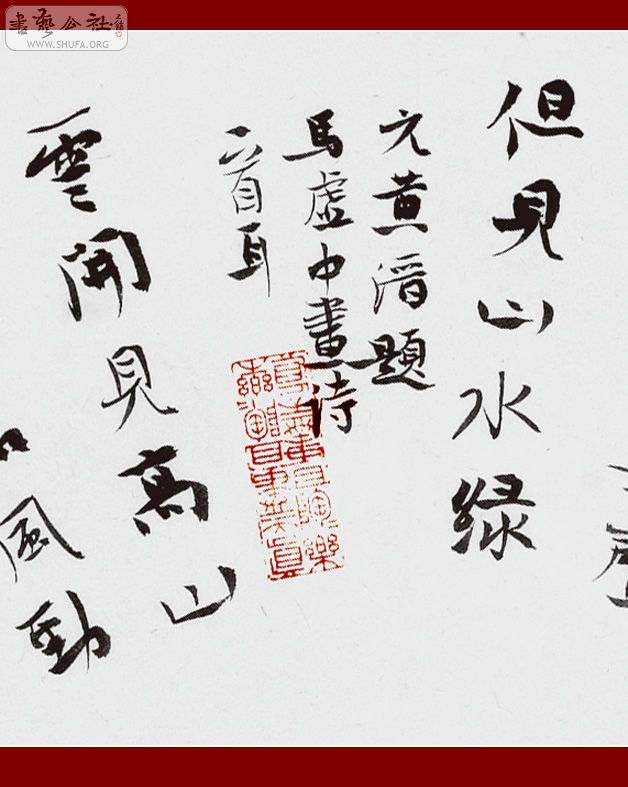 書藝公社
WWW.SHUFA.ORG
但見山水綠
元黃溍題
馬虛中畫诗
二首耳
雲開見高山
風勁